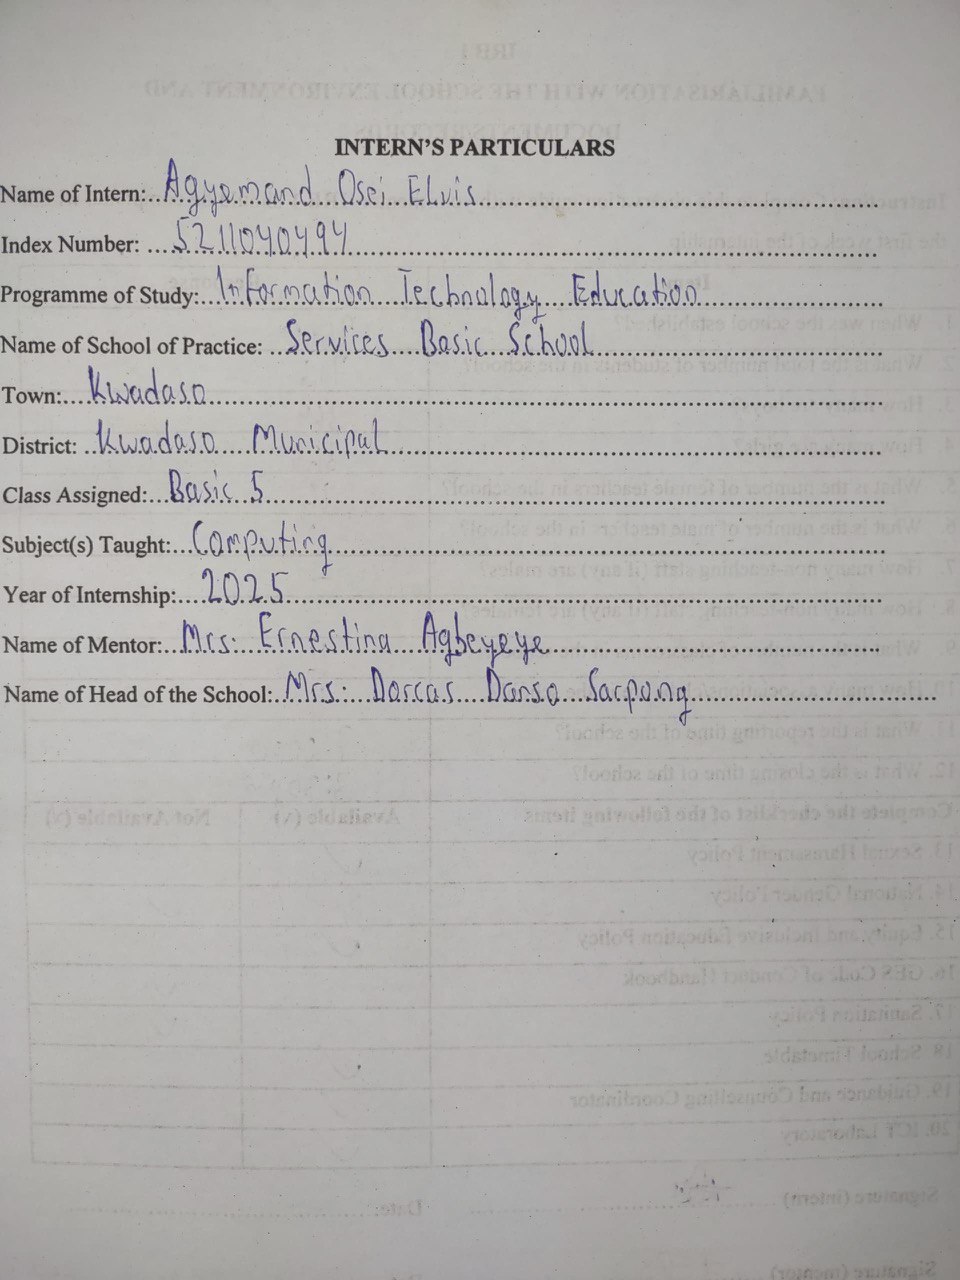 INTERN'S PARTICULARS
Name of Intern: Agyemand Osei Elvis
Index Number: 5211040494
Programme of Study: Information Technology Education
Name of School of Practice: Services Basic School
Town: Kwadaso
District: Kwadaso Municipal
Class Assigned: Basic 5
Subject(s) Taught: Computing
Year of Internship: 2025
Name of Mentor: Mrs. Ernestina Agbeyeye
Name of Head of the School: Mrs. Dorcas Danso Sarpong